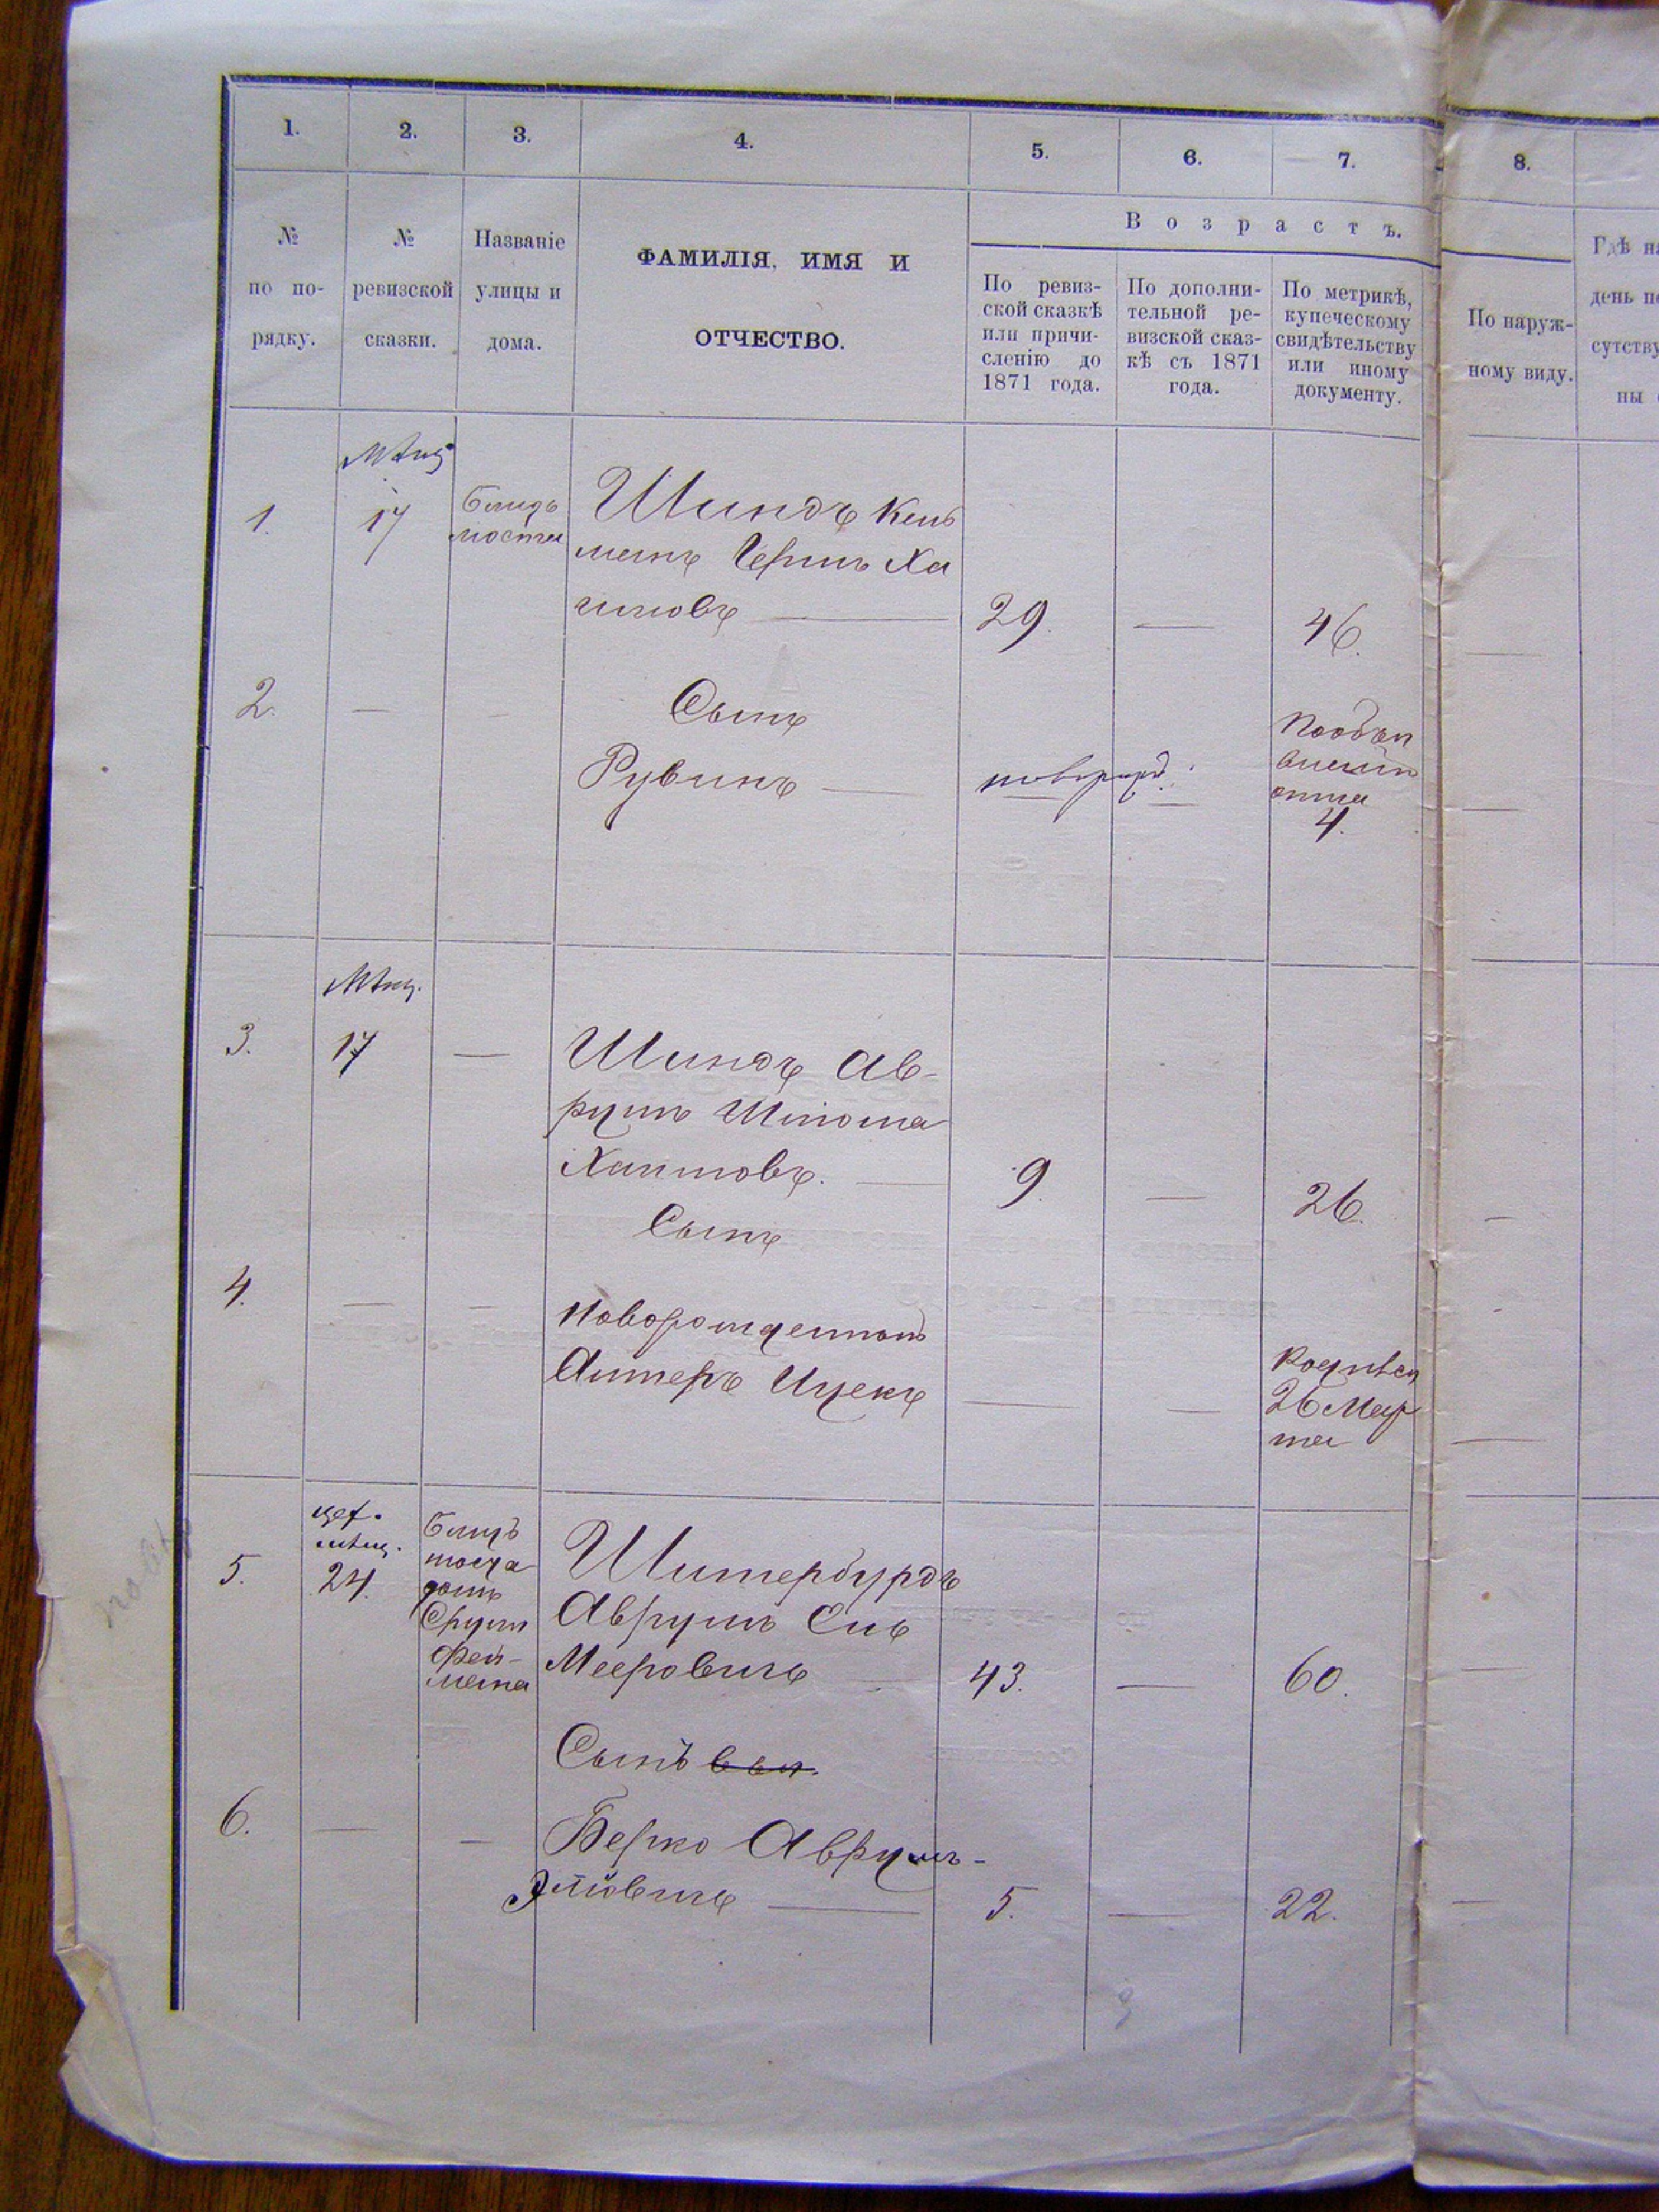 1. 2. 3. 4. 5. 6. 7. 8.
№ по по- рядку.
№ ревизской сказки.
Названіе улицы и дома.
ФАМИЛІЯ, ИМЯ И
ОТЧЕСТВО.
Возрастъ.
По ревиз-
ской сказкѣ
или причи-
сленію до
1871 года.
По дополни-
тельной ре-
визской сказ-
кѣ съ 1871
года.
По метрикѣ,
купеческому
свидѣтельству
или иному
документу.
По наруж-
ному виду.
Гдѣ на
день по
сутству
ны
Мѣщ
1. 17
моста
Шиндъ Кель
манъ Гершъ Ха
имовъ — 29. — 46.
2. — —
Сынъ
Рувинъ —
новорожд.
По объя
вленію
отца
4.
Мѣщ.
3. 17 —
Шиндъ Ав-
румъ Шлёма
Хаимовъ. — 9. — 26.
Сынъ
4. — —
Новорожденный
Алтеръ Ицекъ — —
Родился
26 Мар
та
цех.
мѣщ.
5. 24.
Близъ
моста
домъ
Срула
Фей-
мана
Штербурдъ
Аврумъ Ель
Мееровичъ — 43. — 60.
Сынъ
6. — —
Берко Аврумъ-
Эліовичъ — 5. — 22.